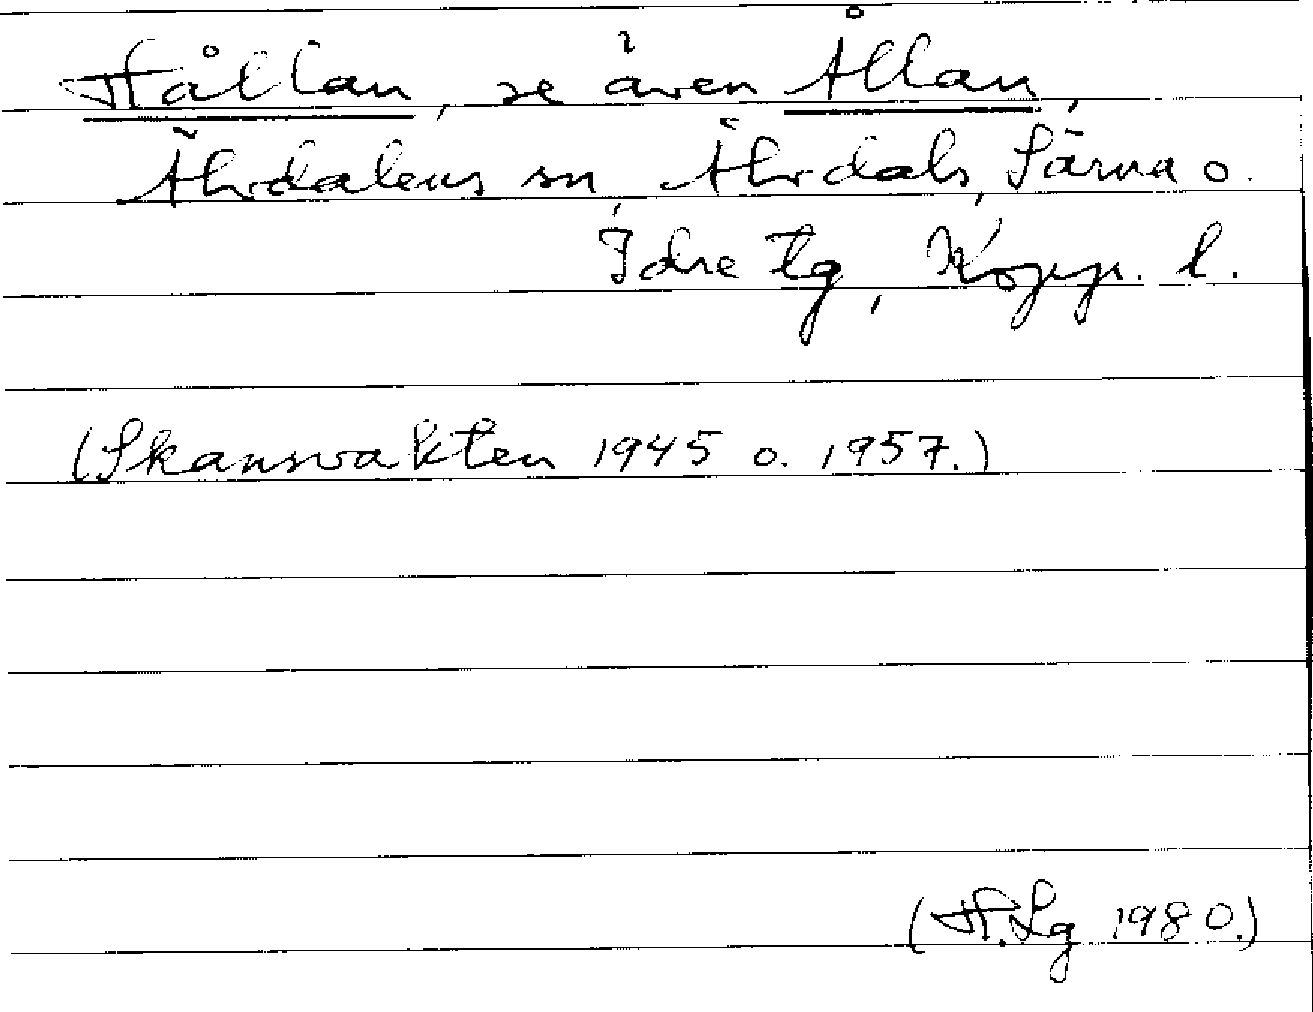 Hållan, se även Ållan,
Älvdalens sn, Älvdals, Särna o.
Idre tg, Kopp. l.
(Skansvakten 1945 o. 1957.)
(H.Lg 1980.)